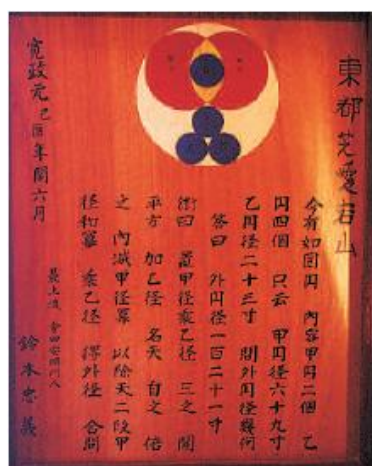 東都芝愛宕山
今有如圖円 内容甲円二個 乙
円四個 只云 甲円径六十九寸
乙円径二十三寸 問外円径幾何
答曰 外円径一百二十一寸
術曰 置甲径乗乙径 三之 開
平方 加乙径 名天 自之 倍
之 内減甲径冪 以除天二段甲
径和冪 乗乙径 得外径 合問
最上流 会田安明門人
鈴木忠義
寛政元己酉年閏六月